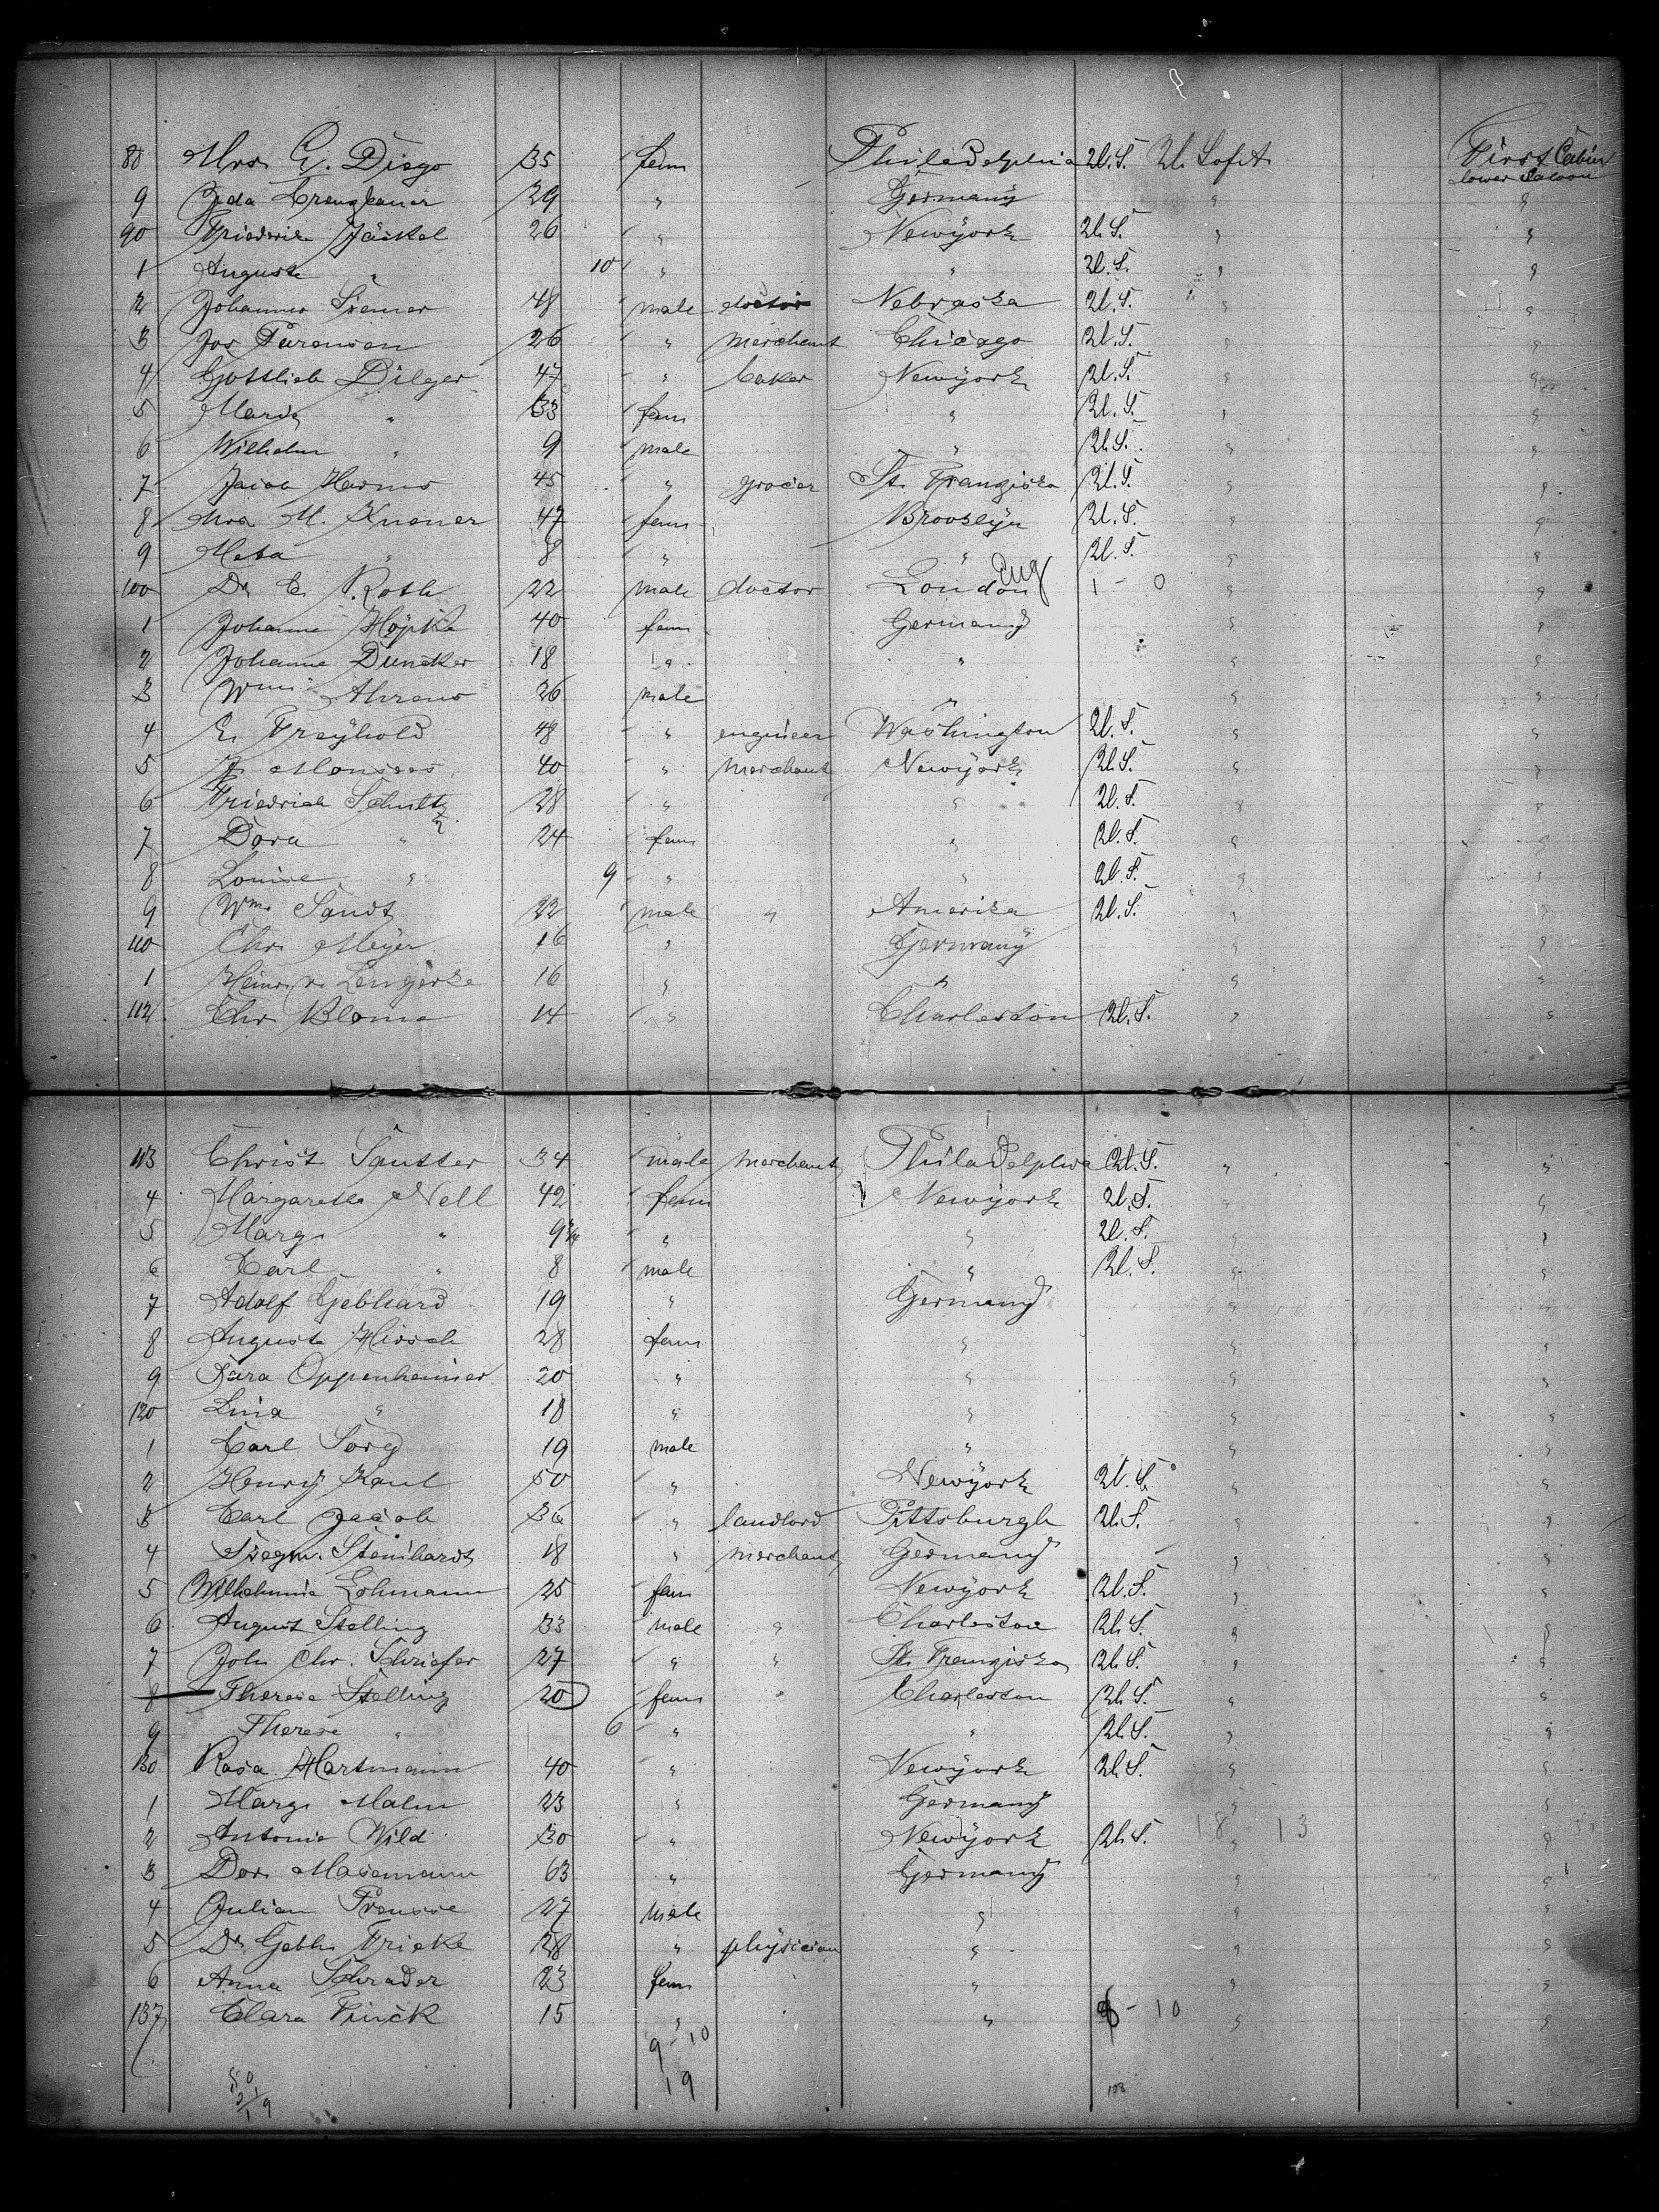 88 Mrs. G. Diego 35 fem Philadelphia U.S. U. Sofst First Cabin lower Saloon
9 Ida 29 " Germany " "
90 Friedericke Jäckel 26 " Newÿork U.S. " "
1 Auguste " 10 " " U.S. " "
2 Johannes Siemer 48 male doctor Nebraska U.S. " "
3 Jos Sürensen 26 " merchant Chicago U.S. " "
4 Gottlieb Dilger 47 " baker Newÿork U.S. " "
5 Maria " 33 fem " U.S. " "
6 Wilhelm " 9 male " U.S. " "
7 Jacob Harms 45 " grocer St. Franzisko U.S. " "
8 Mrs M. Knener 47 fem Brooklÿn U.S. " "
9 Meta " 8 " " U.S. " "
100 Dr. E. Roth 22 male doctor London Eng 1 - 0 " "
1 Johanne Höpke 40 fem Germany " "
2 Johanne Duncker 18 " " " "
3 Wm. Ahrens 26 male " " "
4 E. Freÿhold 48 " engineer Washington U.S. " "
5 Monsees 40 " merchant Newÿork U.S. " "
6 Friedrich Schultz 28 " " U.S. " "
7 Dora " 24 fem " U.S. " "
8 Louise " 9 " " U.S. " "
9 Wm. Sandt 22 male " Amerika U.S. " "
110 Chr. Meÿer 16 " Germanÿ " "
1 Heinr. v. Lengerke 16 " " " "
112 Chr. Blome 14 " Charleston U.S. " "
113 Christ Sautter 34 male merchant Philadelphia U.S. " "
4 Margarethe Nell 42 fem Newÿork U.S. " "
5 Marg. " 9 3/4 " " U.S. " "
6 Carl " 8 male " U.S. " "
7 Adolf Gebhard 19 " Germany " "
8 Auguste Hirsch 28 fem " " "
9 Sara Oppenheimer 20 " " " "
120 Lina " 18 " " " "
1 Carl Sorg 19 male " " "
2 Henry Kaul 50 " Newÿork U.S. " "
3 Carl Jacob 36 " landlord Pittsburgh U.S. " "
4 Siegm. Steinhardt 18 " merchant Germany " "
5 Wilhelmine Lohmann 25 fem Newÿork U.S. " "
6 August Stelling 33 male " Charleston U.S. " "
7 John Chr. Schriefer 27 " " St. Franzisko U.S. " "
8 Therese Stelling 20 fem " Charleston U.S. " "
9 Therese " 6 " " U.S. " "
130 Rosa Hartmann 40 " Newÿork U.S. "
1 Marg. Malm 23 " Germany " "
2 Antonie Wild 30 " Newÿork U.S. 18 13 " "
3 Dor. Masemann 63 " Germany " "
4 Julian Preusse 27 male " " "
5 Dr. Gebh. Fricke 28 " physician " " "
6 Anna Schrader 23 fem " " "
137 Clara Finck 15 " " - 10 " "
9 - 10
19